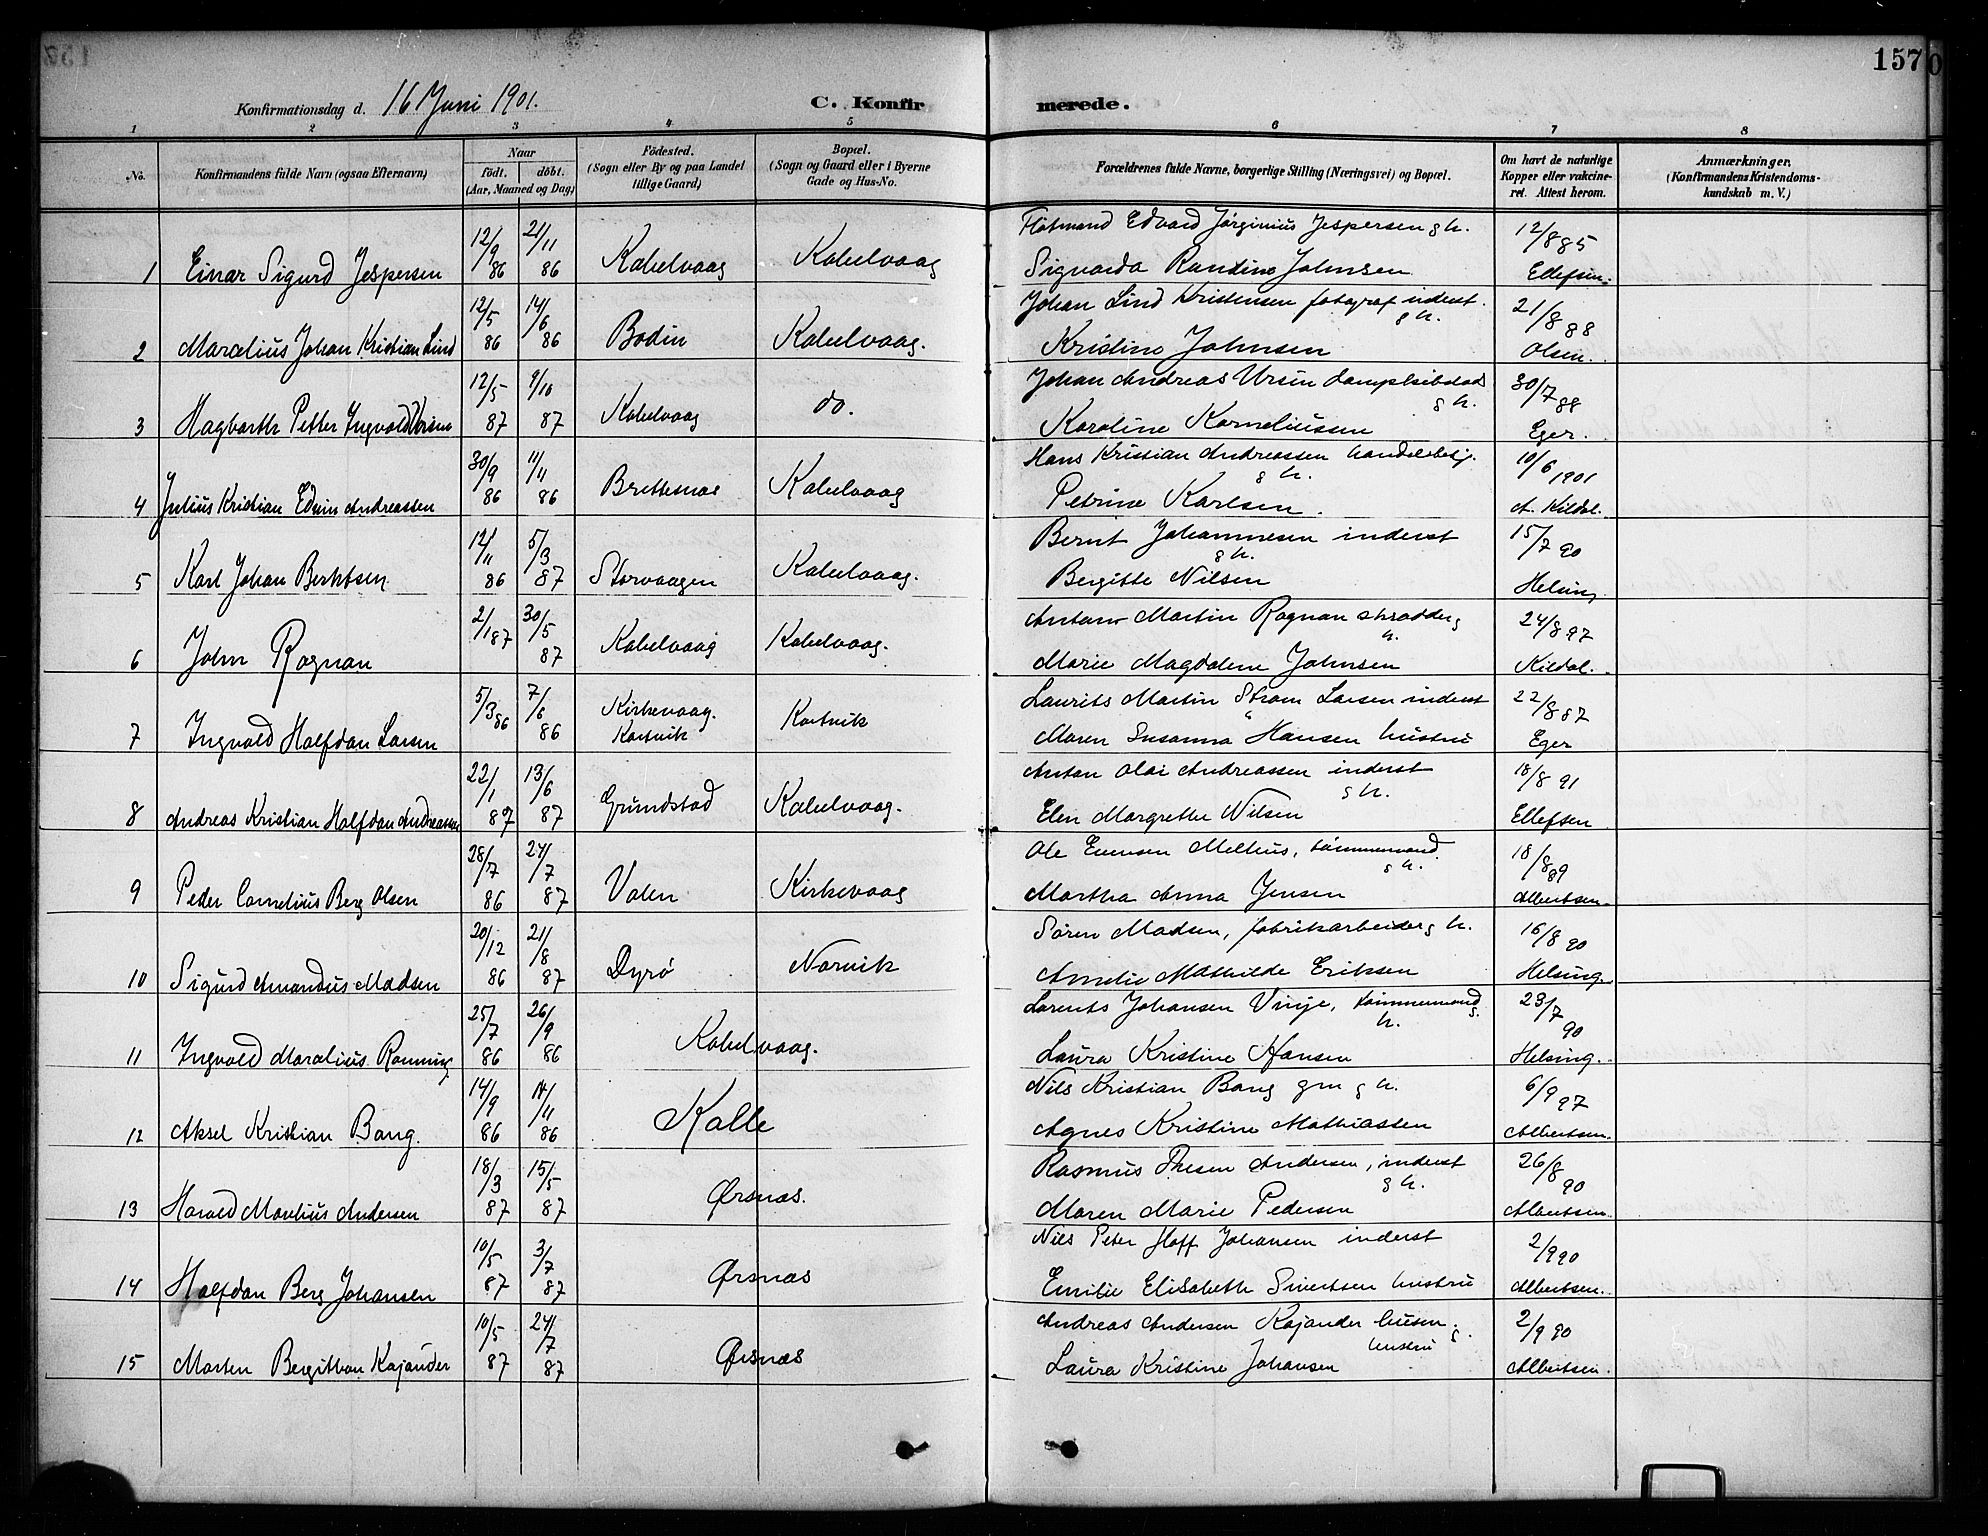 157
Konfirmationsdag d. 16 Juni 1901.
C. Konfirmerede.
1 2 3 4 5 6 7 8
No.
Konfirmandens fulde Navn (ogsaa Efternavn)
Naar
födt. döbt.
(Aar, Maaned og Dag)
Födested.
(Sogn eller By og paa Landet
tillige Gaard)
Bopæl.
(Sogn og Gaard eller i Byerne
Gade og Hus-No.
Forældrenes fulde Navne, borgerlige Stilling (Næringsvei) og Bopæl.
Om havt de naturlige
Kopper eller vakcine-
ret. Attest herom.
Anmærkninger,
(Konfirmandens Kristendoms-
kundskab m. V.)
1 Einar Sigurd Jespersen 12/9 86 21/11 86 Kabelvaag Kabelvaag
Edvard Jørginius Jespersen g h.
Sigvarda Randine Johnsen
12/8 85
Ellefsen.
2 Marcelius Johan Kristian Lind 12/5 86 14/6 86 Bodin Kabelvaag.
Johan Lind Kristensen fotograf inderst.
g h.
Kristine Johnsen
21/8 88
Olsen.
3 Hagbarth Petter Ingvald Ursin 12/5 87 9/10 87 Kabelvaag do.
Johan Andreas Ursin
g h.
Karoline Korneliussen
30/7 88
Eger.
4 Julius Kristian Edvin Andreassen 30/9 86 11/11 86 Brettesnæs Kabelvaag
Hans Kristian Andreassen handelsbetj.
g h.
Petrine Karlsen.
10/6 1901
A. Kildal.
5 Karl Johan Berntsen 12/11 86 5/3 87 Storvaagen Kabelvaag.
Bernt Johannesen inderst
g h.
Bergitte Nilsen
15/7 90
Helsing
6 John Rognan 2/1 87 30/5 87 Kabelvaag Kabelvaag.
Anton Martin Rognan skrædder g
h.
Marie Magdalene Johnsen
24/8 97
Kildal.
7 Ingvald Halfdan Larsen 5/3 86 7/6 86 Kirkevaag.
Kartvik
Kartvik
Laurits Martin Strøm Larsen inderst
Maren Susanna Hansen hustru
22/8 87
Eger
8 Andreas Kristian Halfdan Andreassen 22/1 87 13/6 87 Grundstad Kabelvaag.
Anton Olai Andreassen inderst
g h.
Elen Margrethe Nilsen
18/8 91
Ellefsen
9 Peder Cornelius Berg Olsen 28/7 86 24/7 87 Valen Kirkevaag
Ole Evensen Melhus, tømmermand.
g h.
Martha Anna Jensen
18/8 89
Albertsen.
10 Sigurd Amandus Madsen 20/12 86 21/8 87 Dyrø Narvik
Søren Madsen, fabrikarbeider g h.
Amelie Mathilde Eriksen
16/8 90
Helsing.
11 Ingvald Marcelius Rønning 25/7 86 26/9 86 Kabelvaag.
Lorents Johansen Vinje, tømmermand g.
h.
Laura Kristine Hansen
23/7 90
Helsing.
12 Aksel Kristian Bang. 14/9 86 14/11 86 Kalle
Nils Kristian Bang gm g h.
Agnes Kristine Mathiassen
6/9 97
Albertsen.
13 Harald Marelius Andersen 18/3 87 15/5 87 Ørsnæs.
Rasmus Thesen Andersen, inderst
g h.
Maren Marie Pedersen
26/8 90
Albertsen.
14 Halfdan Berg Johansen 10/5 87 3/7 87 Ørsnæs
Nils Peter Hoff Johansen inderst
Emilie Elisabeth Sivertsen hustru
2/9 90
Albertsen.
15 Morten Bergitbon Kajander 10/5 87 24/7 87 Ørsnæs
Andreas Andersen Kajander husm. g.
hustru
Laura Kristine Johansen
2/9 90
Albertsen.